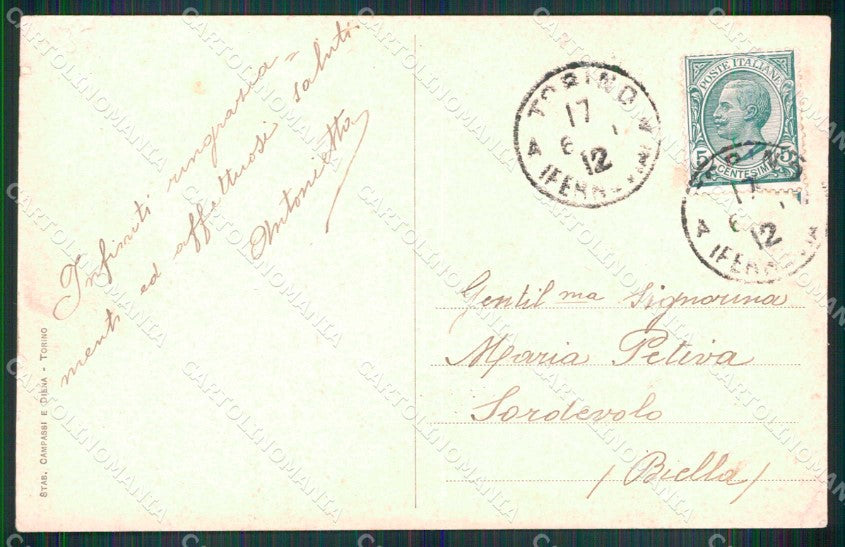 Infiniti ringrazia=
menti ed affettuosi saluti.
Antonietta
STAB. CAMPASSI E DIENA - TORINO
POSTE ITALIANE
5 5
CENTESIMI
TORINO
17
6
12
(FERROVIA)
17
6
12
Gentil ma Signorina
Maria Petiva
Sordevolo
(Biella)
CARTOLINOMANIA